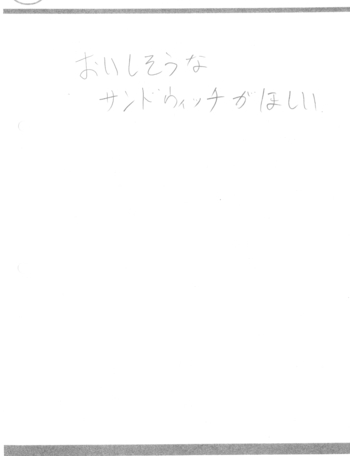 おいしそうな
サンドウィッチがほしい